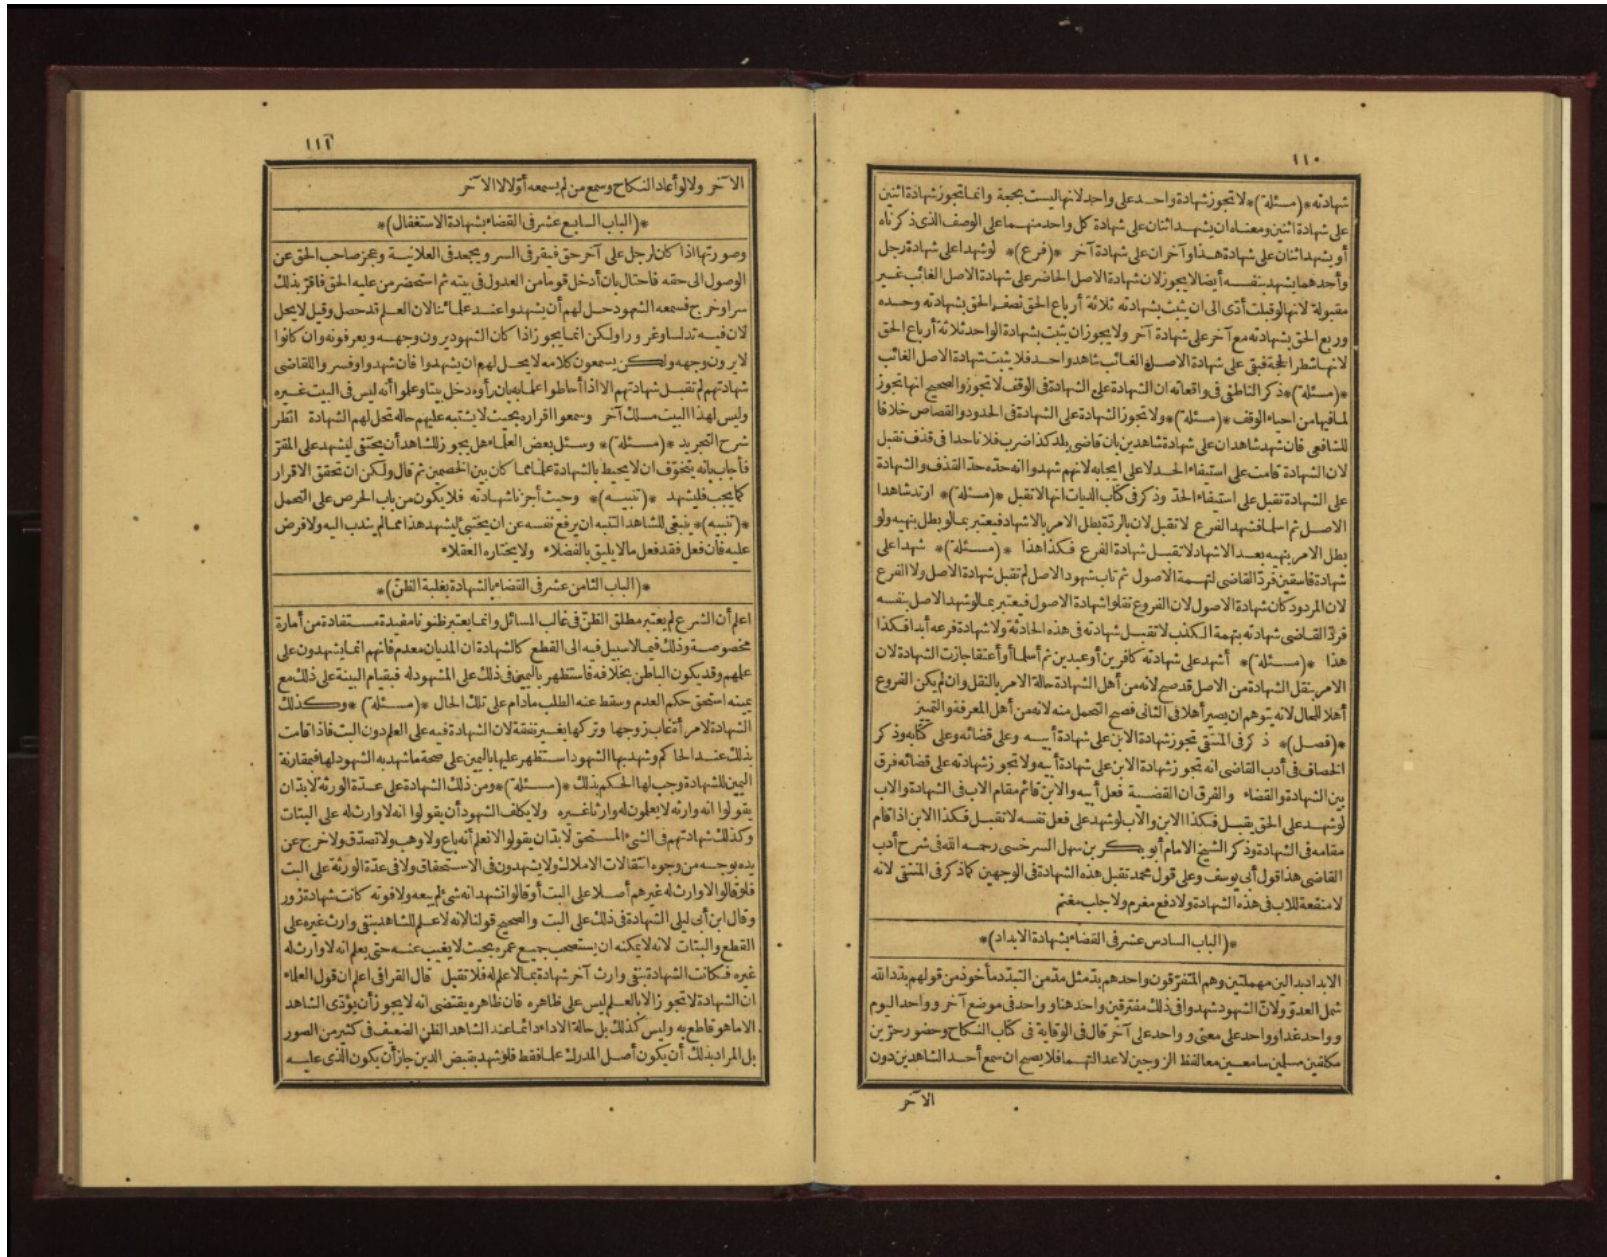 ١١٠
شهادته *(مسئلة)* لا تجوز شهادة واحد على واحد لانها ليست بحجة وانما تجوز شهادة اثنين
على شهادة اثنين ومعناه ان يشهد اثنان على شهادة كل واحد منهما على الوصف الذى ذكرناه
أو يشهد اثنان على شهادة هذا وآخران على شهادة آخر *(فرع)* لو شهدا على شهادة رجل
وأحدهما يشهد بنفسه أيضا لا يجوز لان شهادة الاصل الحاضر على شهادة الاصل الغائب غير
مقبولة لانها لو قبلت أدى الى ان يثبت بشهادته ثلاثة أرباع الحق نصف الحق بشهادته وحده
وربع الحق بشهادته مع آخر على شهادة آخر ولا يجوز ان يثبت بشهادة الواحد ثلاثة أرباع الحق
لانها شطر الحجة فبقى على شهادة الاصل الغائب شاهد واحد فلا يثبت شهادة الاصل الغائب
*(مسئلة)* ذكر الناطفى فى واقعاته ان الشهادة على الشهادة فى الوقف لا تجوز والصحيح انها تجوز
لما فيها من احياء الوقف *(مسئلة)* ولا تجوز الشهادة على الشهادة فى الحدود والقصاص خلافا
للشافعى فان شهد شاهدان على شهادة شاهدين بان قاضى بلد كذا ضرب فلانا حدا فى قذف تقبل
لان الشهادة قامت على استيفاء الحد لا على ايجابه لانهم شهدوا انه حده حد القذف والشهادة
على الشهادة تقبل على استيفاء الحد وذكر فى كتاب الديات انها لا تقبل *(مسئلة)* ارتد شاهدا
الاصل ثم اسلما فشهد الفرع لا تقبل لان بالردة بطل الامر بالاشهاد فيعتبر بما لو بطل بنهيه ولو
بطل الامر بنهيه بعد الاشهاد لا تقبل شهادة الفرع فكذا هذا *(مسئلة)* شهدا على
شهادة فاسقين فرد القاضى لتهمة الاصول ثم تاب شهود الاصل لم تقبل شهادة الاصل ولا الفرع
لان المردود كان شهادة الاصول لان الفروع نقلوا شهادة الاصول فيعتبر بما لو شهد الاصل بنفسه
فرد القاضى شهادته بتهمة الكذب لا تقبل شهادته فى هذه الحادثة ولا شهادة فرعه أبدا فكذا
هذا *(مسئلة)* أشهد على شهادته كافرين أو عبدين ثم أسلما أو أعتقا جازت الشهادة لان
الامر بنقل الشهادة من الاصل قد صح لانه من أهل الشهادة حالة الامر بالنقل وان لم يكن الفروع
أهلا للحال لانه يتوهم ان يصير أهلا فى الثانى فصح التحمل منه لانه من أهل المعرفة والتمييز
*(فصل)* ذكر فى المنتقى تجوز شهادة الابن على شهادة أبيه وعلى قضائه وعلى كتابه وذكر
الخصاف فى أدب القاضى انه تجوز شهادة الابن على شهادة أبيه ولا تجوز شهادته على قضائه فرق
بين الشهادة والقضاء والفرق ان القضية فعل أبيه والابن قائم مقام الاب فى الشهادة والاب
لو شهد على الحق يقبل فكذا الابن والاب لو شهد على فعل نفسه لا تقبل فكذا الابن اذا قام
مقامه فى الشهادة وذكر الشيخ الامام أبو بكر بن سهل السرخسى رحمه الله فى شرح أدب
القاضى هذا قول أبى يوسف وعلى قول محمد تقبل هذه الشهادة فى الوجهين كما ذكر فى المنتقى لانه
لا منفعة للاب فى هذه الشهادة ولا دفع مغرم ولا جلب مغنم
*(الباب السادس عشر فى القضاء بشهادة الابداد)*
الابداد بدالين مهملتين وهم المتفرقون واحدهم بد مثل مد من التبدد مأخوذ من قولهم بدد الله
شمل العدو ولان الشهود شهدوا فى ذلك مفترقين واحد هنا وواحد فى موضع آخر وواحد اليوم
وواحد غدا وواحد على معنى وواحد على آخر قال فى الوقاية فى كتاب النكاح وحضور حرين
مكلفين مسلمين سامعين معا لفظ الزوجين لاعدالتهما فلا يصح ان سمع أحد الشاهدين دون
الآخر
١١١
الآخر ولا لو أعاد النكاح وسمع من لم يسمعه أولا لا الآخر
*(الباب السابع عشر فى القضاء بشهادة الاستغفال)*
وصورتها اذا كان لرجل على آخر حق فيقر فى السر ويجحد فى العلانية وعجز صاحب الحق عن
الوصول الى حقه فاحتال بان أدخل قوما من العدول فى بيته ثم استحضر من عليه الحق فاقر بذلك
سرا وخرج فسمعه الشهود حل لهم أن يشهدوا عند علمائنا لان العلم قد حصل وقيل لا يحل
لان فيه تدلسا وغرورا ولكن انما يجوز اذا كان الشهود يرون وجهه ويعرفونه وان كانوا
لا يرون وجهه ولكن يسمعون كلامه لا يحل لهم ان يشهدوا فان شهدوا وفسروا للقاضى
شهادتهم لم تقبل شهادتهم الا اذا أحاطوا علما به بان رأوه دخل بيتا وعلموا أنه ليس فى البيت غيره
وليس لهذا البيت مسلك آخر وسمعوا اقراره بحيث لا يشتبه عليهم حاله تحل لهم الشهادة انظر
شرح التجريد *(مسئلة)* وسئل بعض العلماء هل يجوز للشاهد أن يختفى ليشهد على المقر
فأجاب بانه يتخوف ان لا يحيط بالشهادة علما مما كان بين الخصمين ثم قال ولكن ان تحقق الاقرار
كما يجب فليشهد *(تنبيه)* وحيث أجزنا شهادته فلا يكون من باب الحرص على التحمل
*(تنبيه)* ينبغى للشاهد التنبه ان يرفع نفسه عن ان يختبئ ليشهد هذا مما لم يندب اليه ولا فرض
عليه فان فعل فقد فعل ما لا يليق بالفضلاء ولا يختاره العقلاء
*(الباب الثامن عشر فى القضاء بالشهادة بغلبة الظن)*
اعلم أن الشرع لم يعتبر مطلق الظن فى غالب المسائل وانما يعتبر ظنونا مفيدة مستفادة من أمارة
مخصوصة وذلك فيما لا سبيل فيه الى القطع كالشهادة ان المديان معدم فانهم انما يشهدون على
علمهم وقد يكون الباطن بخلافه فاستظهر باليمين فى ذلك على المشهود له فبقيام البينة على ذلك مع
يمينه استحق حكم العدم وسقط عنه الطلب مادام على تلك الحال *(مسئلة)* وكذلك
الشهادة لامرأة غاب زوجها وتركها بغير نفقة لان الشهادة فيه على العلم دون البت فاذا قامت
بذلك عند الحاكم وشهد بها الشهود استظهر عليها باليمين على صحة ما شهد به الشهود لها فبمقارنة
اليمين للشهادة وجب لها الحكم بذلك *(مسئلة)* ومن ذلك الشهادة على عدة الورثة لا بد ان
يقولوا انه وارثه لا يعلمون له وارثا غيره ولا يكلف الشهود أن يقولوا انه لا وارث له على البتات
وكذلك شهادتهم فى الشئ المستحق لا بد ان يقولوا لا نعلم أنه باع ولا وهب ولا تصدق ولا خرج عن
يده بوجه من وجوه انتقالات الاملاك ولا يشهدون فى الاستحقاق ولا فى عدة الورثة على البت
فلو قالوا لا وارث له غيرهم أصلا على البت أو قالوا نشهد انه شئ لم يبعه ولا فوته كانت شهادة زور
وقال ابن أبى ليلى الشهادة فى ذلك على البت والصحيح قولنا لانه لا علم للشاهد بنفى وارث غيره على
القطع والبتات لانه لا يمكنه ان يستصحب جميع عمره بحيث لا يغيب عنه حتى يعلم انه لا وارث له
غيره فكانت الشهادة بنفى وارث آخر شهادة بما لا علم له فلا تقبل قال القرافى اعلم ان قول العلماء
ان الشهادة لا تجوز الا بالعلم ليس على ظاهره فان ظاهره يقتضى انه لا يجوز أن يؤدى الشاهد
الا ما هو قاطع به وليس كذلك بل حالة الاداء دائما عند الشاهد الظن الضعيف فى كثير من الصور
بل المراد بذلك أن يكون أصل المدرك علما فقط فلو شهد بقبض الدين جاز أن يكون الذى عليه